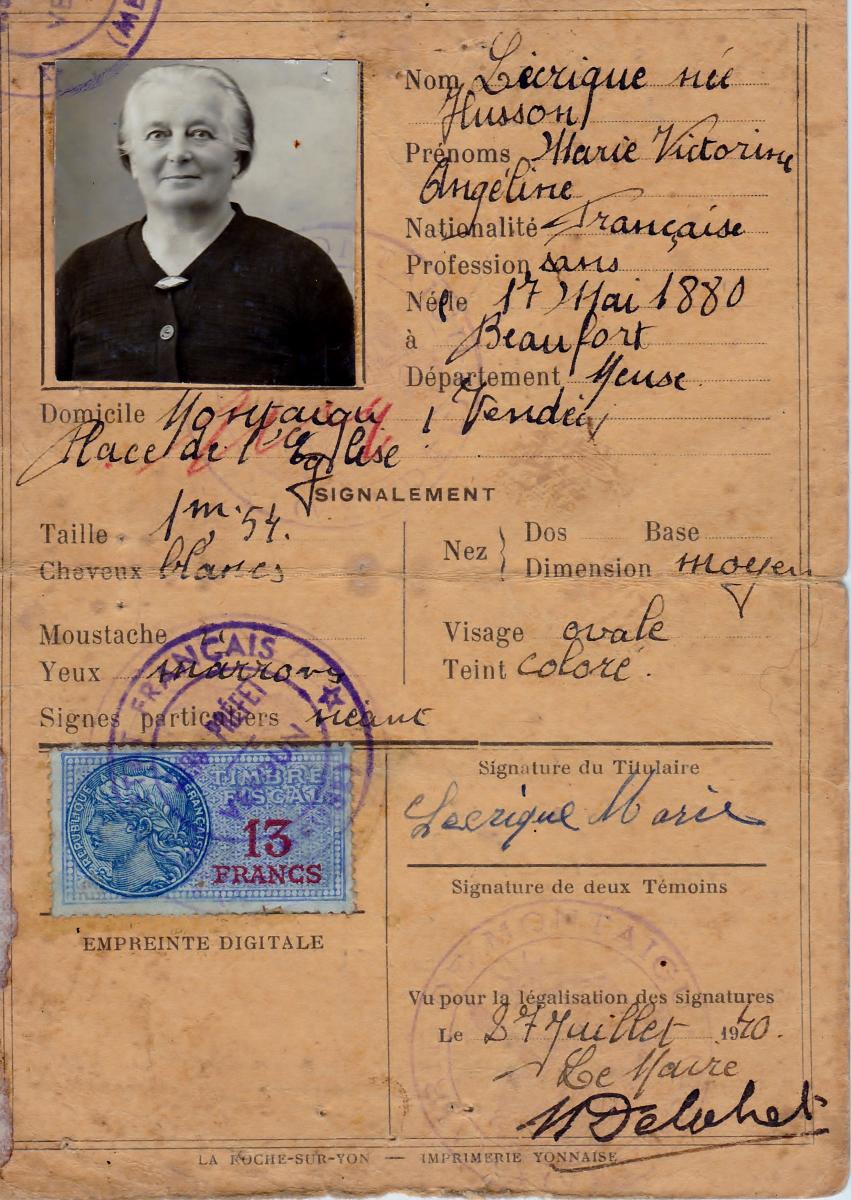 Nom Lécrique née
Husson
Prénoms Marie Victorine
Angéline
Nationalité Française
Profession sans
Née le 17 Mai 1880
à Beaufort
Département Meuse
Domicile Montaigu / Vendée
Place de l'Eglise
SIGNALEMENT
Taille 1m.54.
Cheveux blancs
Nez Dos Base
Dimension moyen
Moustache
Yeux marrons
Visage ovale
Teint coloré.
Signes particuliers néant
FRANÇAIS
PRÉFET
RÉPUBLIQUE FRANÇAISE
TIMBRE
FISCAL
13
FRANCS
EMPREINTE DIGITALE
Signature du Titulaire
Lecrique Marie
Signature de deux Témoins
MONTAIGU
Vu pour la légalisation des signatures
Le 27 Juillet 1940.
Le Maire
LA ROCHE-SUR-YON — IMPRIMERIE YONNAISE